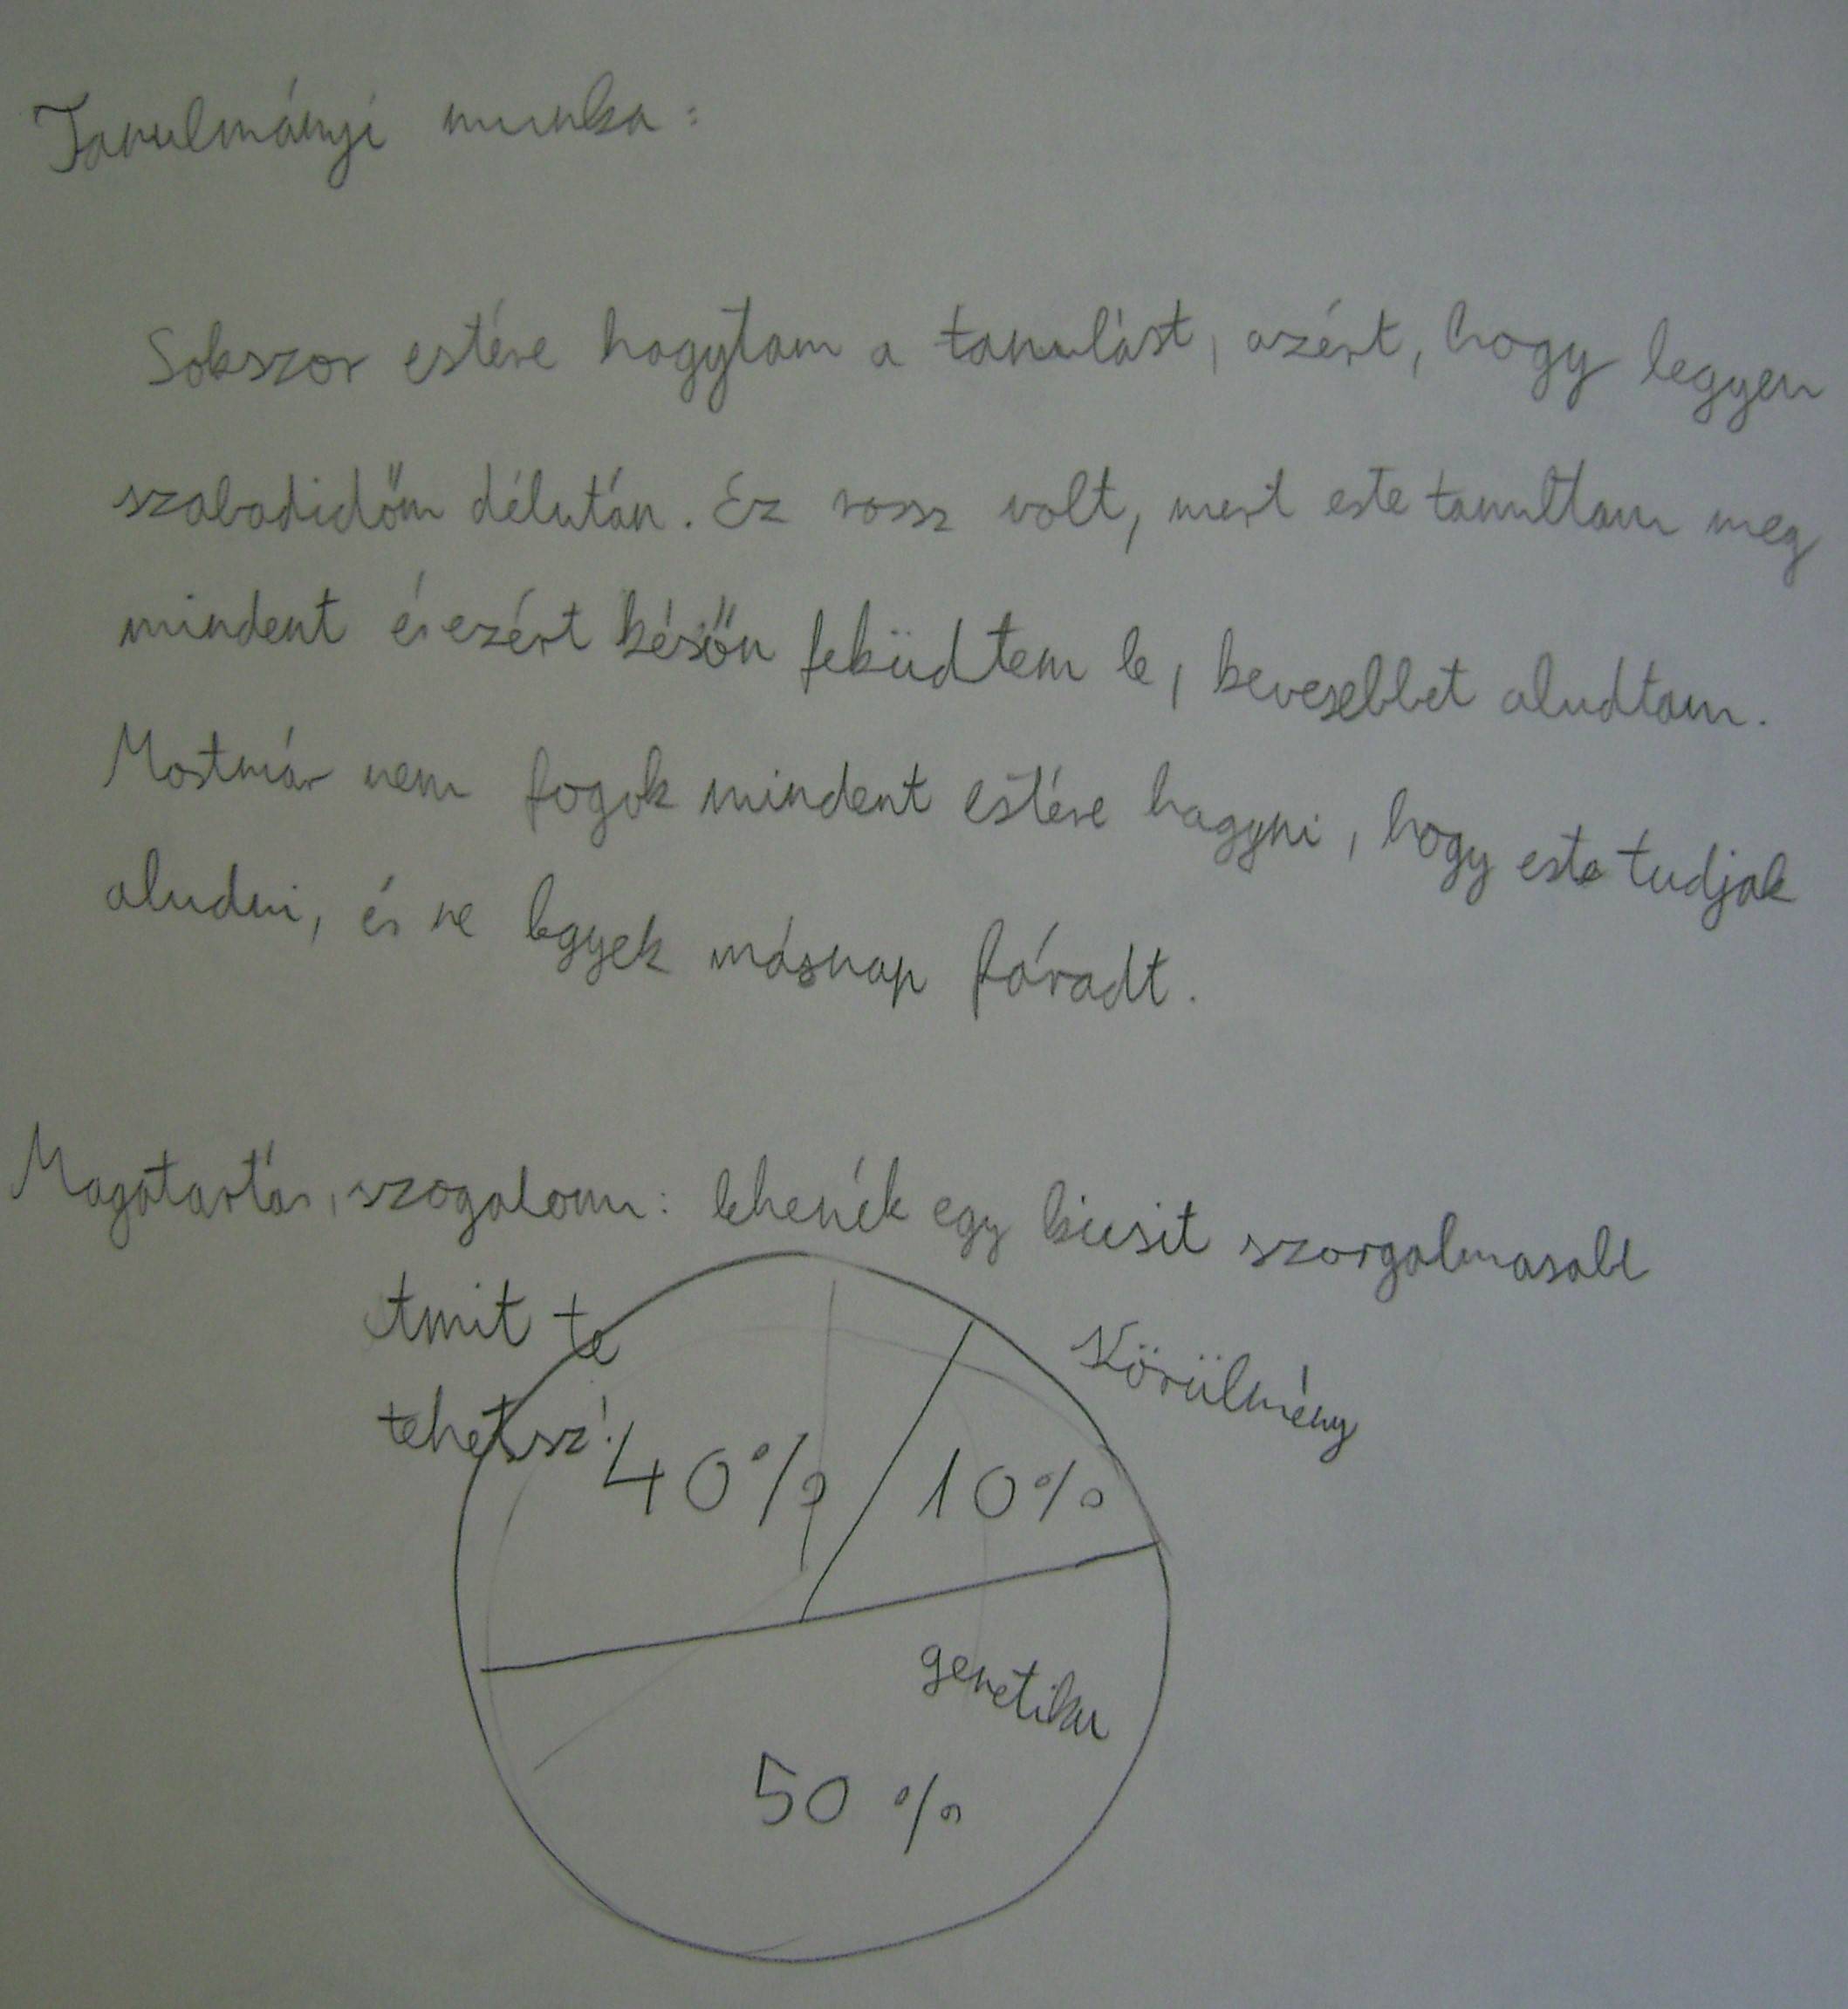 Tanulmányi munka:
Sokszor estére hagytam a tanulást, azért, hogy legyen
szabadidőm délután. Ez rossz volt, mert este tanultam meg
mindent és ezért későn feküdtem le, kevesebbet aludtam.
Mostmár nem fogok mindent estére hagyni, hogy este tudjak
aludni, és ne legyek másnap fáradt.
Magatartás, szogalom: lehenék egy kicsit szorgalmasabb
Amit te
tehetsz!
Körülmény
40%
10%
genetika
50 %